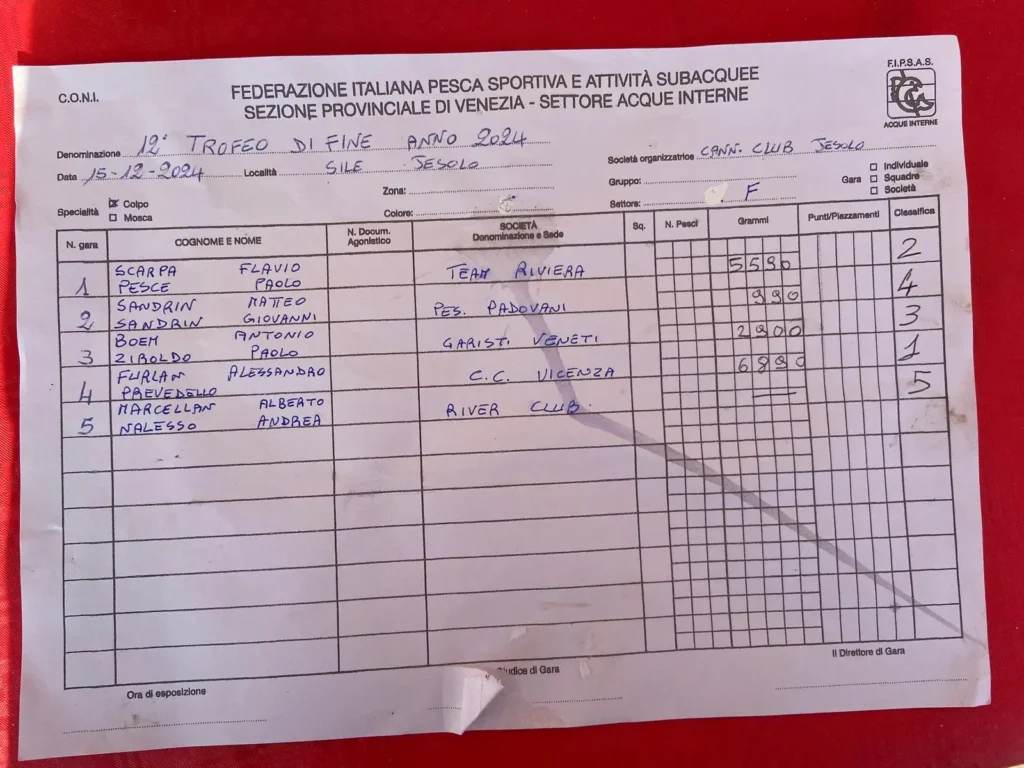 C.O.N.I.
FEDERAZIONE ITALIANA PESCA SPORTIVA E ATTIVITÀ SUBACQUEE
SEZIONE PROVINCIALE DI VENEZIA - SETTORE ACQUE INTERNE
F.I.P.S.A.S.
ACQUE INTERNE
Denominazione 12° TROFEO DI FINE ANNO 2024
Società organizzatrice CANN. CLUB JESOLO
Data 15-12-2024 Località SILE JESOLO
Zona: Gruppo: Gara Individuale
Squadre
Società
Specialità Colpo
Mosca
Colore: Settore: F
N. gara COGNOME E NOME N. Docum. Agonistico SOCIETÀ Denominazione e Sede Sq. N. Pesci Grammi Punti/Piazzamenti Classifica
1 SCARPA FLAVIO TEAM RIVIERA 5590 2
PESCE PAOLO
2 SANDRIN MATTEO PES. PADOVANI 990 4
SANDRIN GIOVANNI
3 BOEM ANTONIO GARISTI VENETI 2900 3
ZIBOLDO PAOLO
4 FURLAN ALESSANDRO C.C. VICENZA 6890 1
PREVEDELLO
5 MARCELLAN ALBERTO RIVER CLUB. — 5
NALESSO ANDREA
Ora di esposizione
Giudice di Gara
Il Direttore di Gara